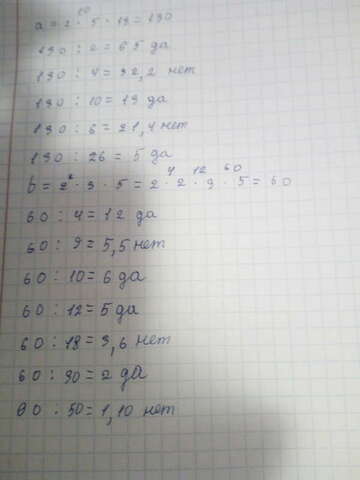 a = 2 · 5 · 13 = 130
10
130 : 2 = 65 да
130 : 4 = 32,2 нет
130 : 10 = 13 да
130 : 6 = 21,4 нет
130 : 26 = 5 да
4 12 60
b = 2² · 3 · 5 = 2 · 2 · 3 · 5 = 60
60 : 4 = 12 да
60 : 9 = 5,5 нет
60 : 10 = 6 да
60 : 12 = 5 да
60 : 18 = 3,6 нет
60 : 30 = 2 да
60 : 50 = 1,10 нет